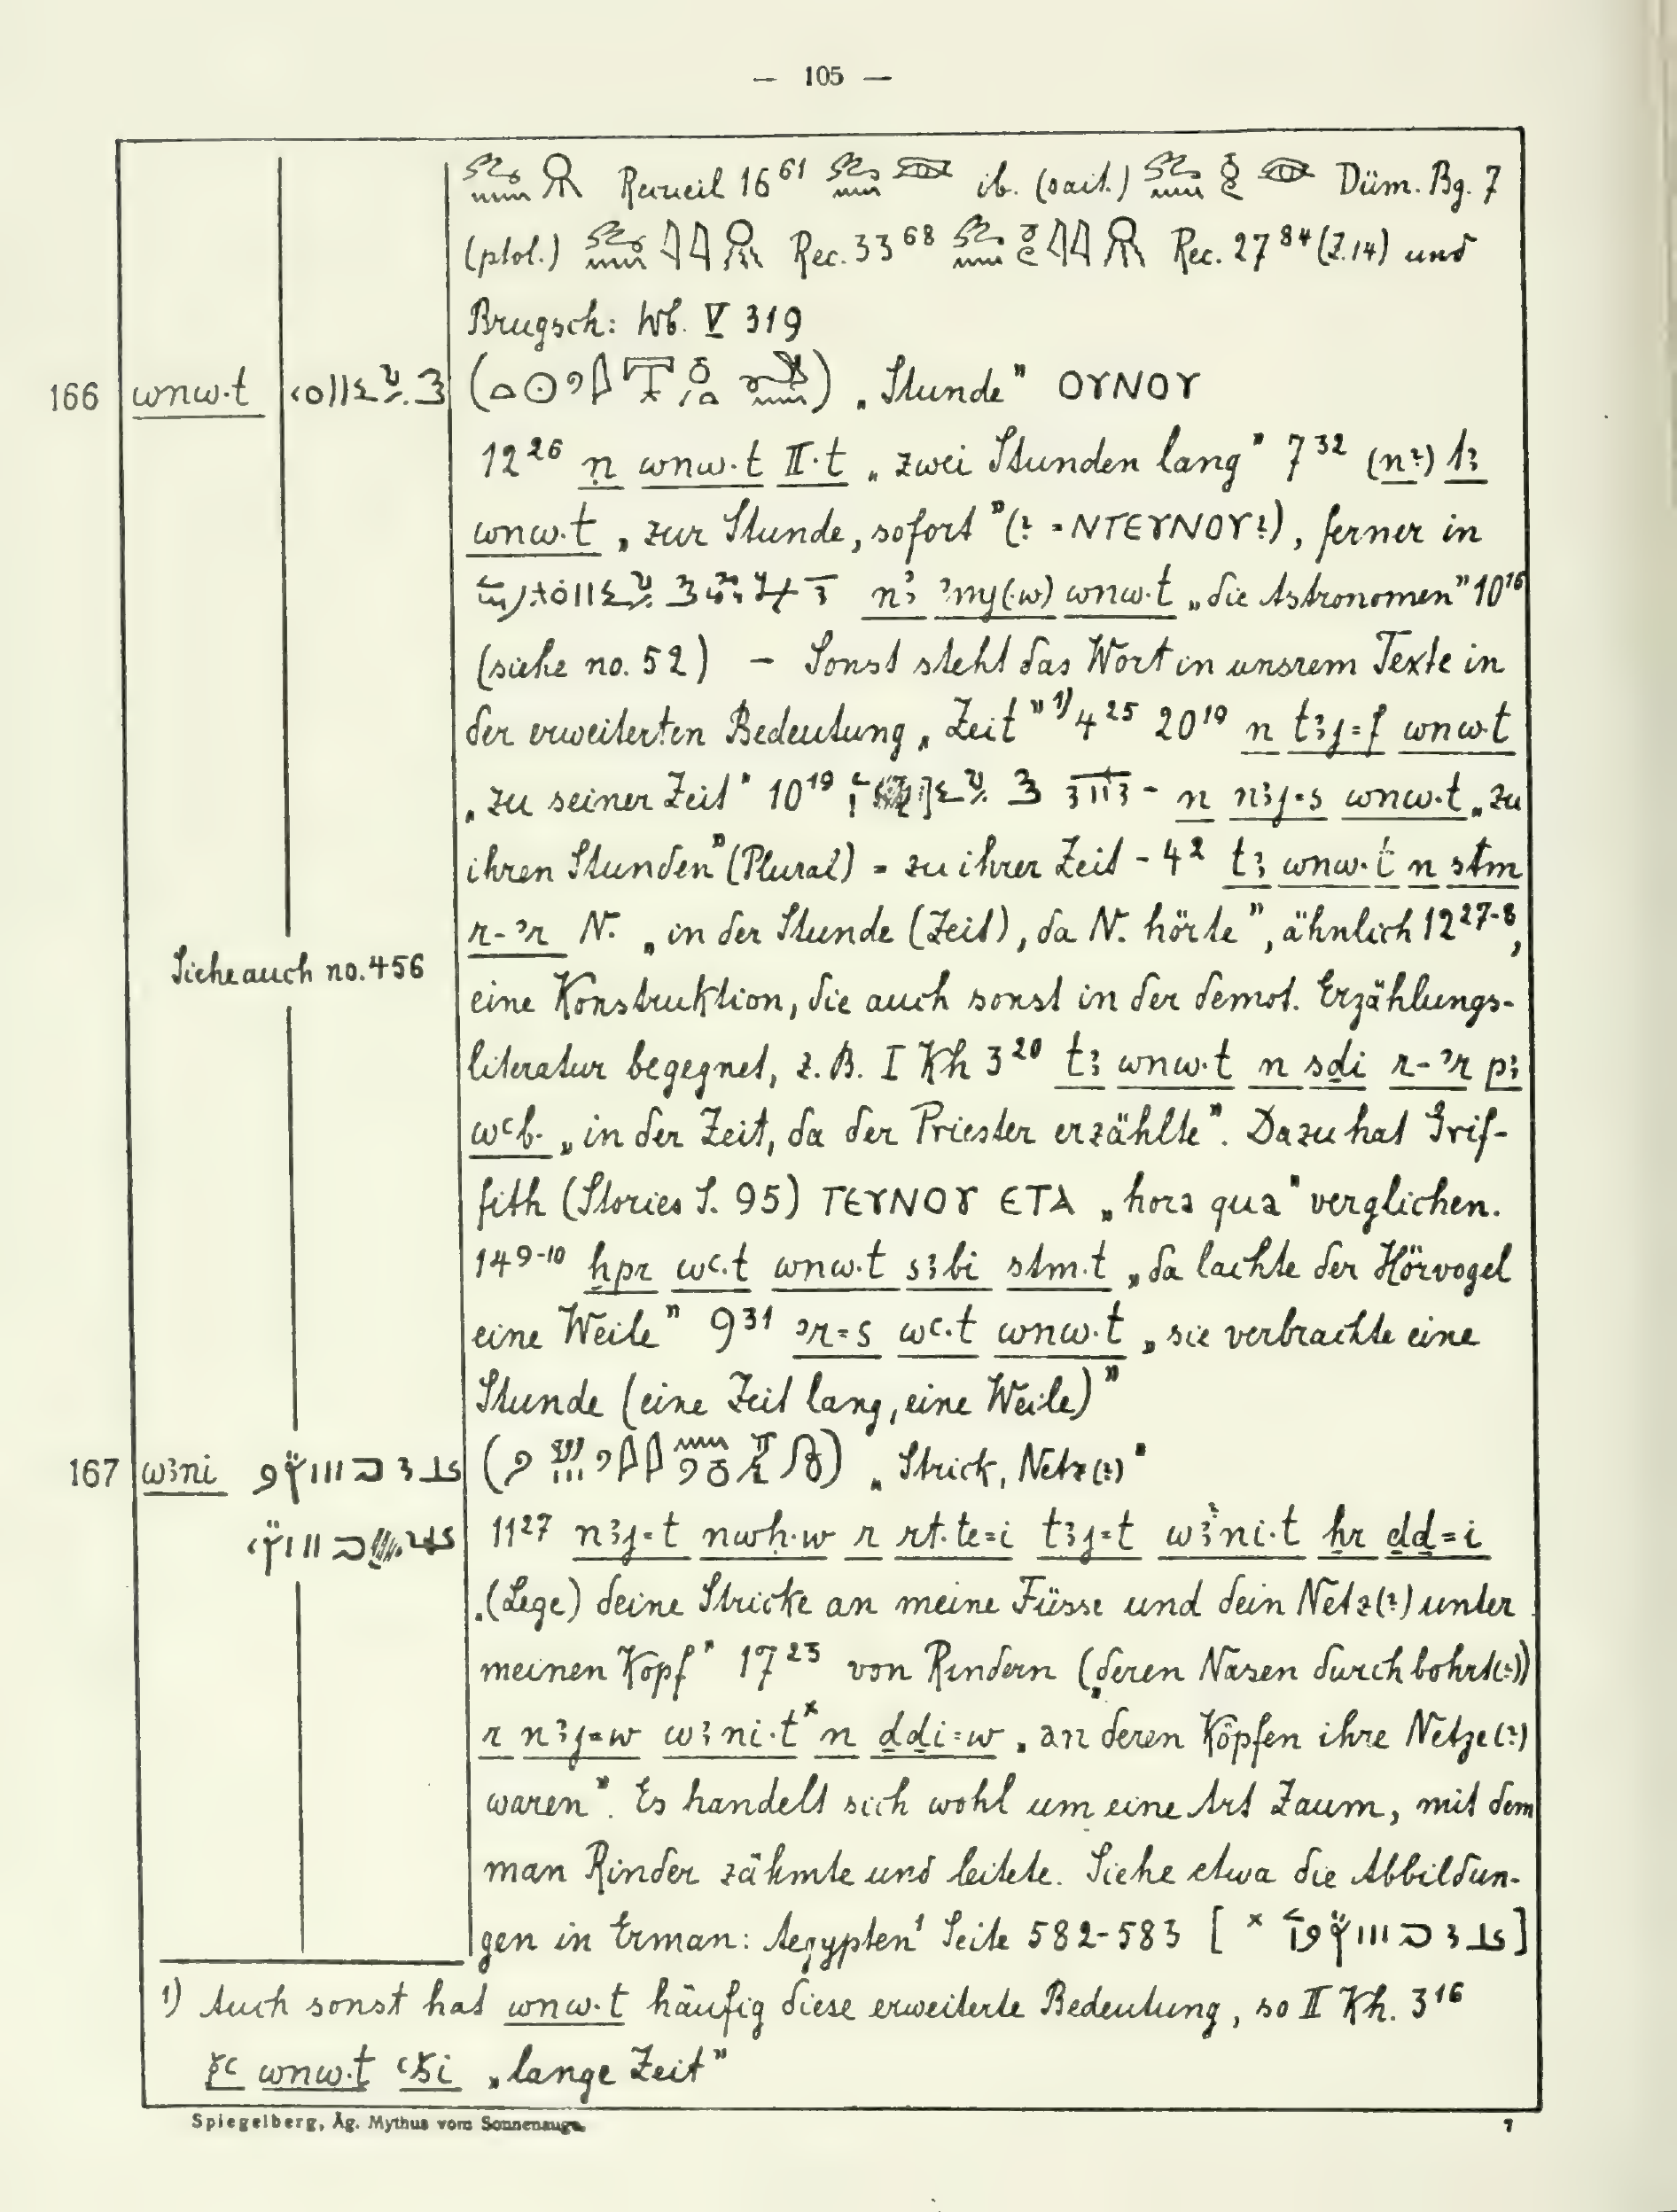 — 105 —
Recueil 16 61 ib. (sait.) Düm. Bg. 7
(ptol.) Rec. 33 68 Rec. 27 84 (Z. 14) und
Brugsch: Wb. V 319
166 wnw·t ( ) „Stunde” ⲞⲨⲚⲞⲨ
12 26 n wnw·t II·t „zwei Stunden lang” 7 32 (n?) tꜣ
wnw·t „zur Stunde, sofort” (? = ⲚⲦⲈⲨⲚⲞⲨ?), ferner in
nꜣ ꜥmy(·w) wnw·t „die Astronomen” 10 16
(siehe no. 52) – Sonst steht das Wort in unsrem Texte in
der erweiterten Bedeutung „Zeit” 1) 4 25 20 19 n tꜣj=f wnw·t
„zu seiner Zeit” 10 19 – n nꜣj=s wnw·t „zu
ihren Stunden” (Plural) = zu ihrer Zeit – 4 2 tꜣ wnw·t n stm
r-ʾr N. „in der Stunde (Zeit), da N. hörte”, ähnlich 12 27-8,
Siehe auch no. 456
eine Konstruktion, die auch sonst in der demot. Erzählungs-
literatur begegnet, z. B. I Kh 3 20 tꜣ wnw·t n sdi r-ʾr pꜣ
wꜥb „in der Zeit, da der Priester erzählte”. Dazu hat Grif-
fith (Stories S. 95) ⲦⲈⲨⲚⲞⲨ ⲈⲦⲀ „hora qua” verglichen.
14 9-10 ḫpr wꜥ·t wnw·t sꜣbi stm·t „da lachte der Hörvogel
eine Weile” 9 31 ʾr=s wꜥ·t wnw·t „sie verbrachte eine
Stunde (eine Zeit lang, eine Weile)”
167 wꜣni ( ) „Strick, Netz(?)”
11 27 nꜣj=t nwḥ·w r rt·te=i tꜣj=t wꜣni·t ẖr ḏḏ=i
„(Lege) deine Stricke an meine Füsse und dein Netz(?) unter
meinen Kopf” 17 23 von Rindern („deren Nasen durchbohrt(?))
r nꜣj=w wꜣni·t x n ḏḏi=w „an deren Köpfen ihre Netze(?)
waren”. Es handelt sich wohl um eine Art Zaum, mit dem
man Rinder zähmte und leitete. Siehe etwa die Abbildun-
gen in Erman: Aegypten 1 Seite 582-583 [ x ]
1) Auch sonst hat wnw·t häufig diese erweiterte Bedeutung, so II Kh. 3 16
wnw·t „lange Zeit”
Spiegelberg, Äg. Mythus vom Sonnenauge. 7